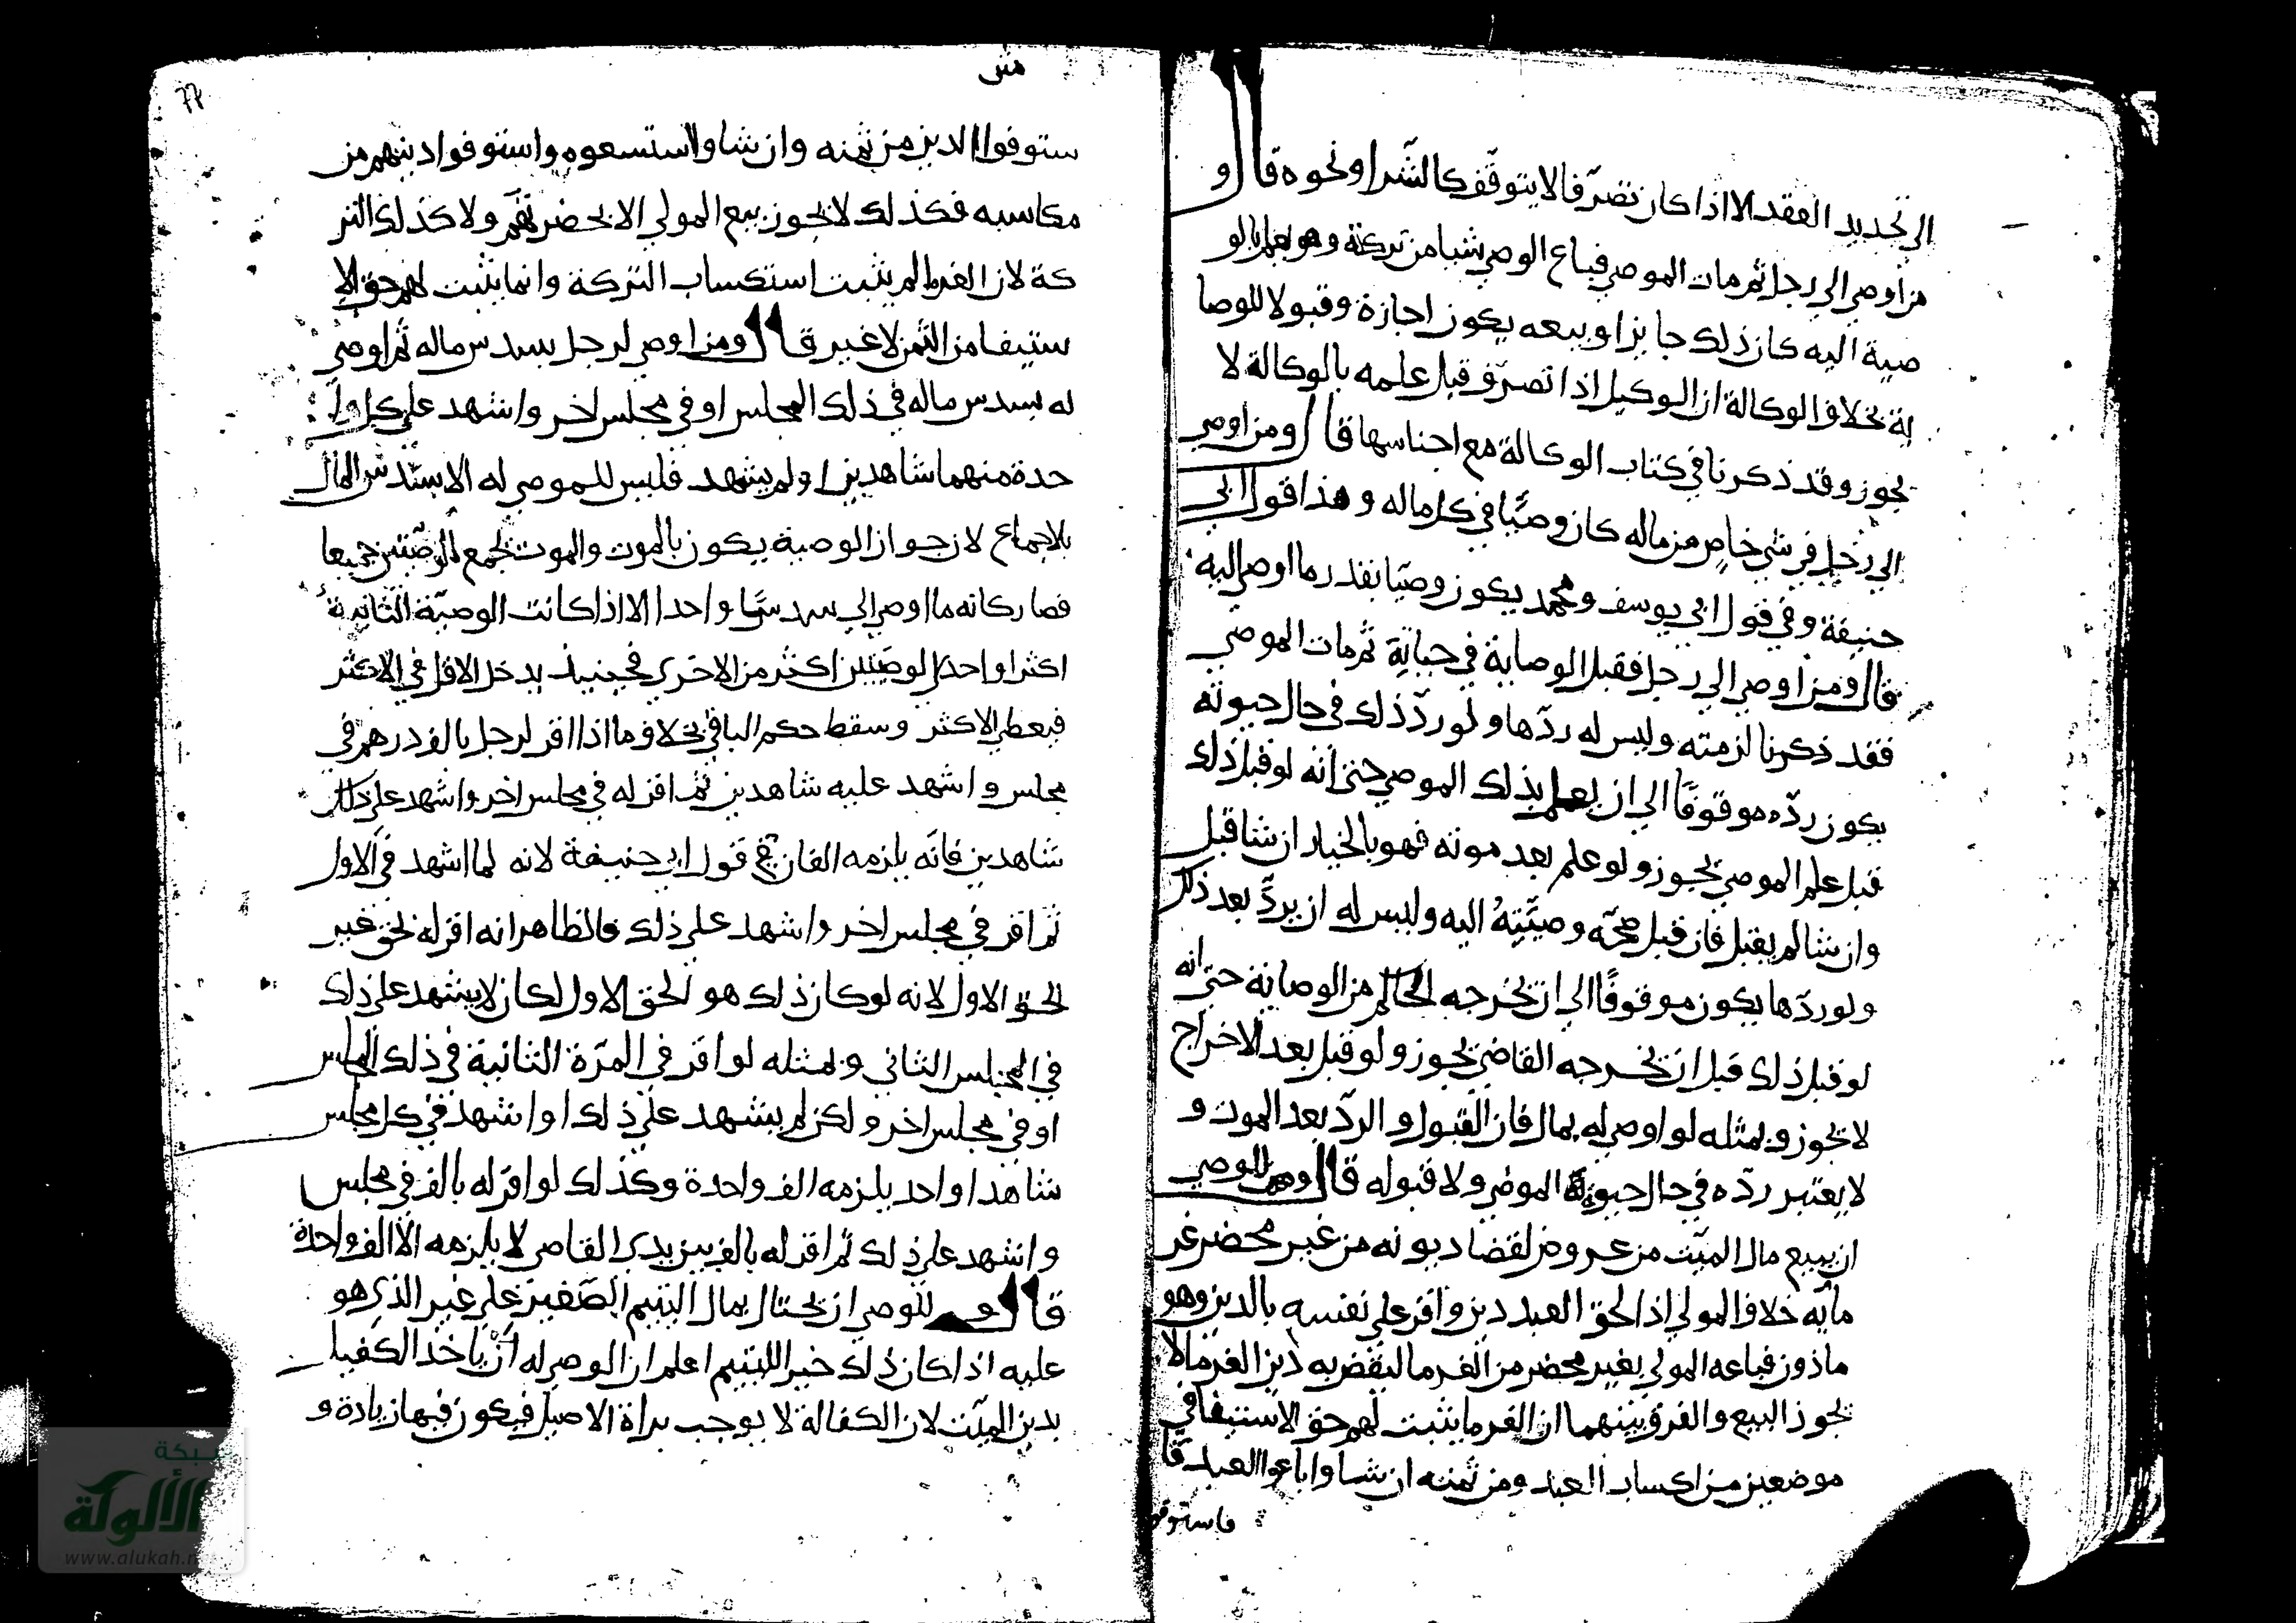 الي تجديد العقد الا اذا كان تصرّفا لا يتوقّف كالشّرا ونحوه قال و
من اوصي الي رجل ثم مات الموصي فباع الوصي شيا من تركته وهو يعلم بالو
صية اليه كان ذلك جايزا وبيعه يكون اجازة وقبولا للوصا
ية بخلاف الوكالة ان الوكيل اذا تصرّف قبل علمه بالوكالة لا
يجوز وقد ذكرنا في كتاب الوكالة مع اجناسها قال ومن اوصي
الي رجل في شي خاص من ماله كان وصيّا في كل ماله وهذا قول ابي
حنيفة وفي قول ابي يوسف ومحمد يكون وصيّا بقدر ما اوصي اليه
قال ومن اوصي الي رجل فقبل الوصاية في حياته ثم مات الموصي
فقد ذكرنا لزمته وليس له ردّها ولو ردّ ذلك في حال حيوته
يكون ردّه موقوفًا الي ان يعلم بذلك الموصي حتى انه لو قبل ذلك
قبل علم الموصي يجوز ولو علم بعد موته فهو بالخيار ان شا قبل
وان شا لم يقبل فان قبل صحّة وصيّتِهُ اليه وليس له ان يردّ بعد ذلك
ولو ردّها يكون موقوفًا الي ان يخرجه الحاكم من الوصاية حتى انه
لو قبل ذلك قبل ان يخرجه القاضي يجوز ولو قبل بعد الاخراج
لا يجوز وبمثله لو اوصي له بمال فان القبول والردّ بعد الموت و
لا يعتبر ردّه في حال حيوته الموصي ولا قبوله قال وهل للوصي
ان يبيع مال الميّت من عروض لقضا ديونه من غير محضر غر
مآيه خلاف المولي اذا لحق العبد دين واقر علي نفسه بالدين وهو
ماذون فباعه المولي بغير محضر من الغرما ليقضي به دين الغرما لا
يجوز البيع والفرق بينهما ان الغرما يثبت لهم حق الاستيفا في
موضعين من اكساب العبد ومن ثمنه ان شاوا باعوا العبد فا
فاستوفو
ستوفوا الدين من ثمنه وان شاوا استسعوه واستوفوا دينهم من
مكاسبه فكذلك لا يجوز بيع المولي الا بحضرتهم ولا كذلك التر
كة لان الغرما لم يثبت استكساب التركة وانما يثبت لهم حق الا
ستيفا من الثمن لا غير قال ومن اوصي لرجل بسدس ماله ثم اوصي
له بسدس ماله في ذلك المجلس او في مجلس اخر واشهد علي كل وا
حدة منهما شاهدين او لم يشهد فليس للموصي له الا سدس المال
بلاجماع لان جواز الوصية يكون بالموت والموت يجمع الوصيّتين جميعا
فصار كانه ما اوصي الي سدسًا واحدا الا اذا كانت الوصيّة الثانية
اكثر او احد الوصيّتين اكثر من الاخري فحينيذ يدخل الاقل في الاكثر
فيعطي الاكثر وسقط حكم الباقي بخلاف ما اذا اقر لرجل بالف درهم في
مجلس واشهد عليه شاهدين ثم اقر له في مجلس اخر واشهد علي ذلك
شاهدين فانّه يلزمه الفان في قول ابي حنيفة لانه لما اشهد في الاول
ثم اقر في مجلس اخر واشهد علي ذلك فالظاهر انه اقر له بحق غير
الحق الاول لانه لو كان ذلك هو الحق الاول لكان لا يشهد علي ذلك
في المجلس الثاني وبمثله لو اقر في المرّة الثانية في ذلك المجلس
او في مجلس اخر ولكن لم يشهد علي ذلك او اشهد في كل مجلس
شاهدا واحد يلزمه الف واحدة وكذلك لو اقر له بالف في مجلس
واشهد علي ذلك ثم اقر له بالف بين يدي القاضي لا يلزمه الا الف واحدة
قال و للوصي ان يحتال بمال اليتيم الصّغير علي غير الذي هو
عليه اذا كان ذلك خيرا لليتيم اعلم ان الوصي له ان ياخذ الكفيل
بدين الميّت لان الكفالة لا يوجب براة الاصيل فيكون فيها زيادة و
شبكة
الألوكة
www.alukah.net